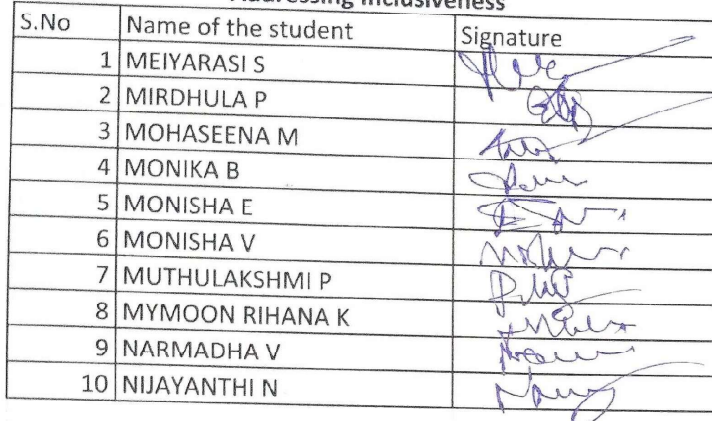 Addressing Inclusiveness
S.No Name of the student Signature
1 MEIYARASI S
2 MIRDHULA P
3 MOHASEENA M
4 MONIKA B
5 MONISHA E
6 MONISHA V
7 MUTHULAKSHMI P
8 MYMOON RIHANA K
9 NARMADHA V
10 NIJAYANTHI N